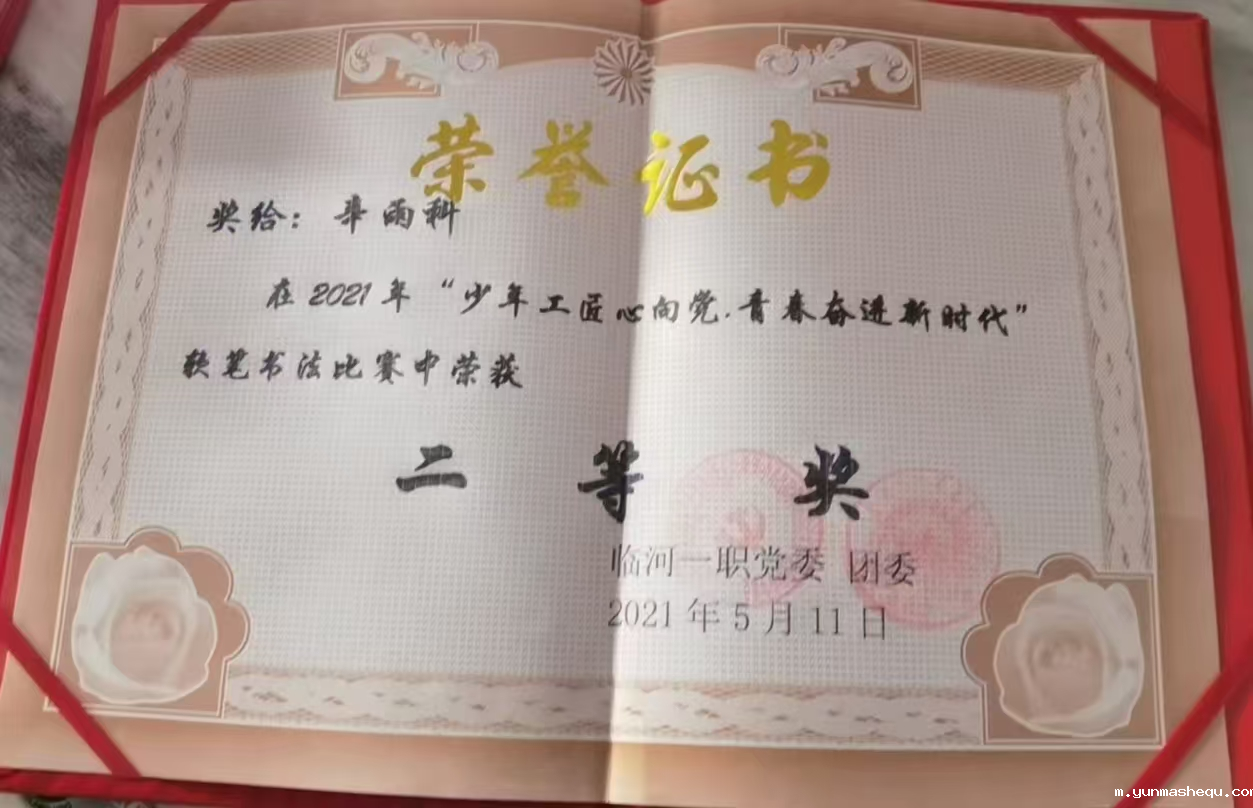 荣誉证书
奖给：芈雨科
在2021年“少年工匠心向党.青春奋进新时代”
软笔书法比赛中荣获
二等奖
临河一职党委 团委
2021年5月11日
m.yunmashequ.com